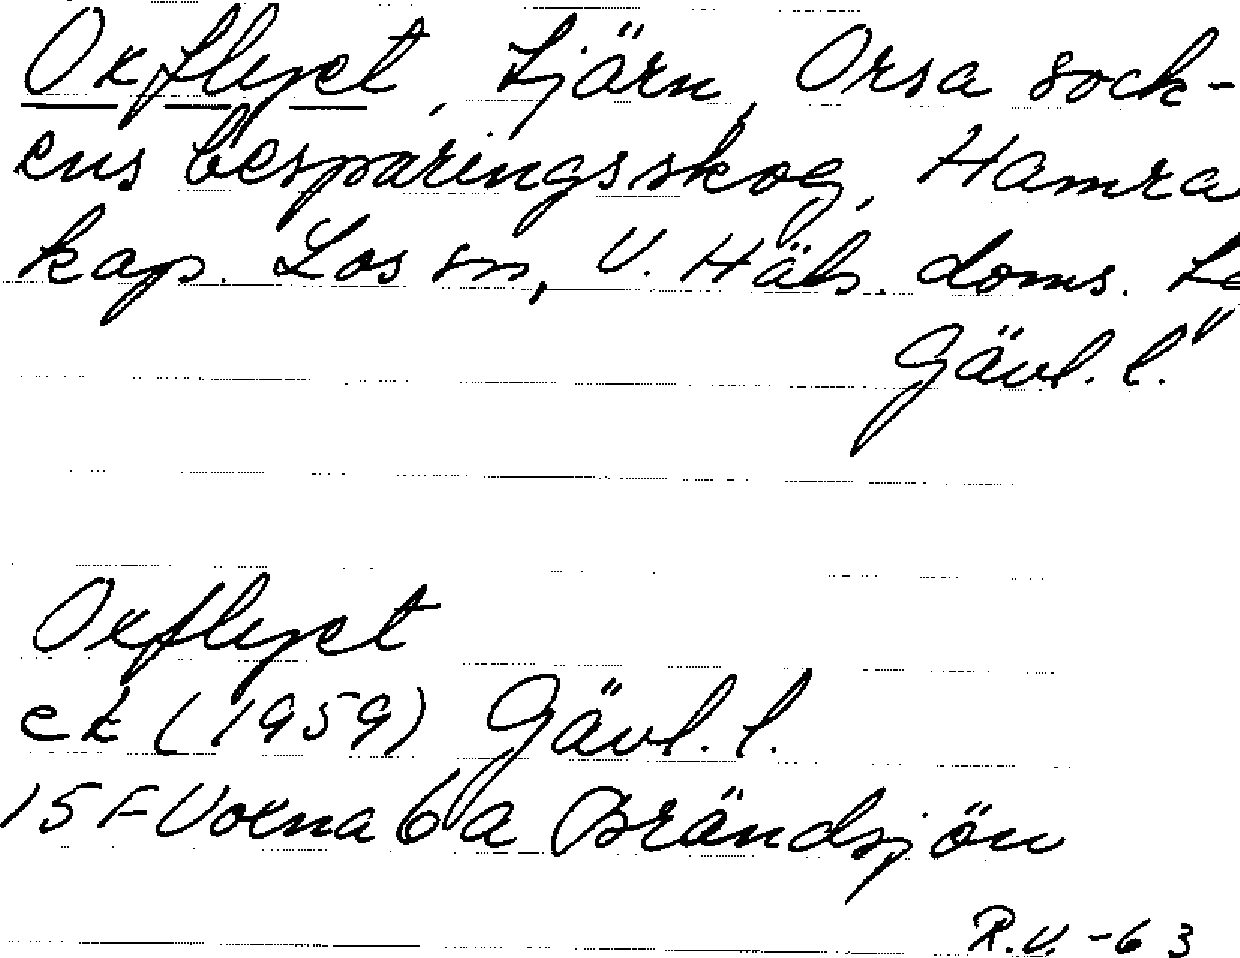 Oxflyet, tjärn, Orsa sock-
ens besparingsskog, Hamra
kap. Los sn, V. Häls. doms.
Gävl. l.
Oxflyet
ek (1959) Gävl. l.
15 F Voxna 6 a Brändsjön
R.V. -63